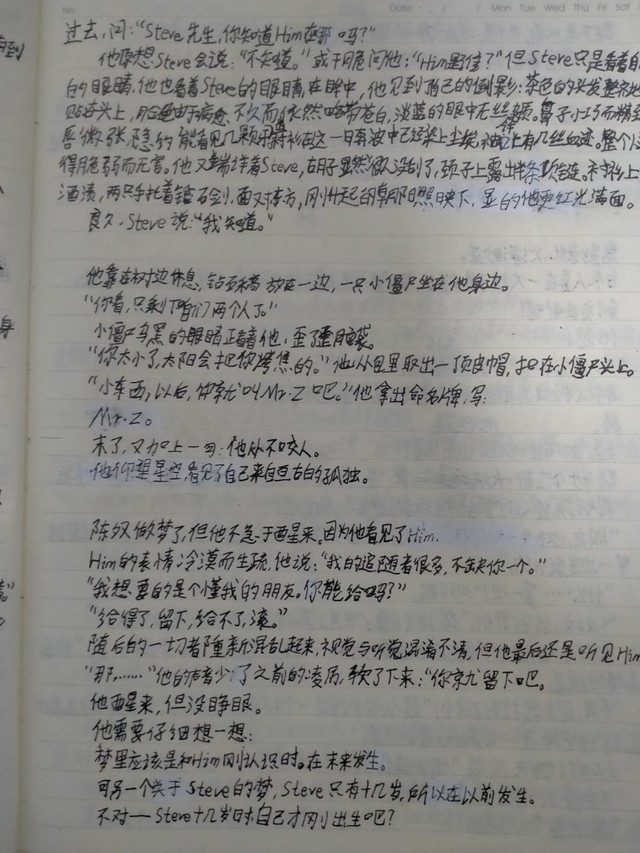 No.
Date: . / . / Mon Tue Wed Thu Fri Sat
过去,问:“Steve先生,你知道Him在哪吗?”
他原想Steve会说:“不知道。”或干脆问他:“Him是谁?”但Steve只是看着
的眼睛,他也看着Steve的眼睛,在眸中,他见到了自己的倒影:茶色的头发整齐地
贴在头上,脸色由于病愈不久而依然略带苍白,淡蓝的眼中无丝 鼻子小巧而精
唇微张,隐约能看见几颗牙 衬衫在这一日奔波中已经染上尘埃, 上有几丝血迹。整个
得脆弱而无害。他又端详着Steve, 子显然 没刮了,颈子上露出 条项链。衬衫上
酒渍,两只手托着钻石剑,面对东方,刚升起的朝阳照映下,显的他更红光满面。
良久,Steve说:“我知道。”
他靠在树边休息,钻石镐放在一边,一只小僵尸坐在他身边。
“你看,只剩下咱们两个人了。”
小僵尸乌黑的眼睛正看着他,歪了歪脑袋。
“你太小了,太阳会把你烤焦的。”他从包里取出一顶皮帽,扣在小僵尸头上。
“小东西,以后,你就叫Mr.Z吧。”他拿出命名牌,写:
Mr.Z。
末了,又加上一句:他从不咬人。
他仰望星空,看见了自己来自亘古的孤独。
陈奴做梦了,但他不急于醒来,因为他看见了Him.
Him的表情冷漠而生疏,他说:“我的追随者很多,不缺你一个。”
“我想要的是个懂我的朋友。你能给吗?”
“给得了,留下,给不了,滚。”
随后的一切都重新混乱起来,视觉与听觉混淆不清,但他最后还是听见Him
“那,……”他的声音少了之前的凌厉,软了下来:“你就留下吧。
他醒来,但没睁眼。
他需要仔细想一想:
梦里应该是和Him刚认识时。在未来发生。
可另一个关于Steve的梦,Steve只有十几岁,所以在以前发生。
不对——Steve十几岁时自己才刚出生吧?